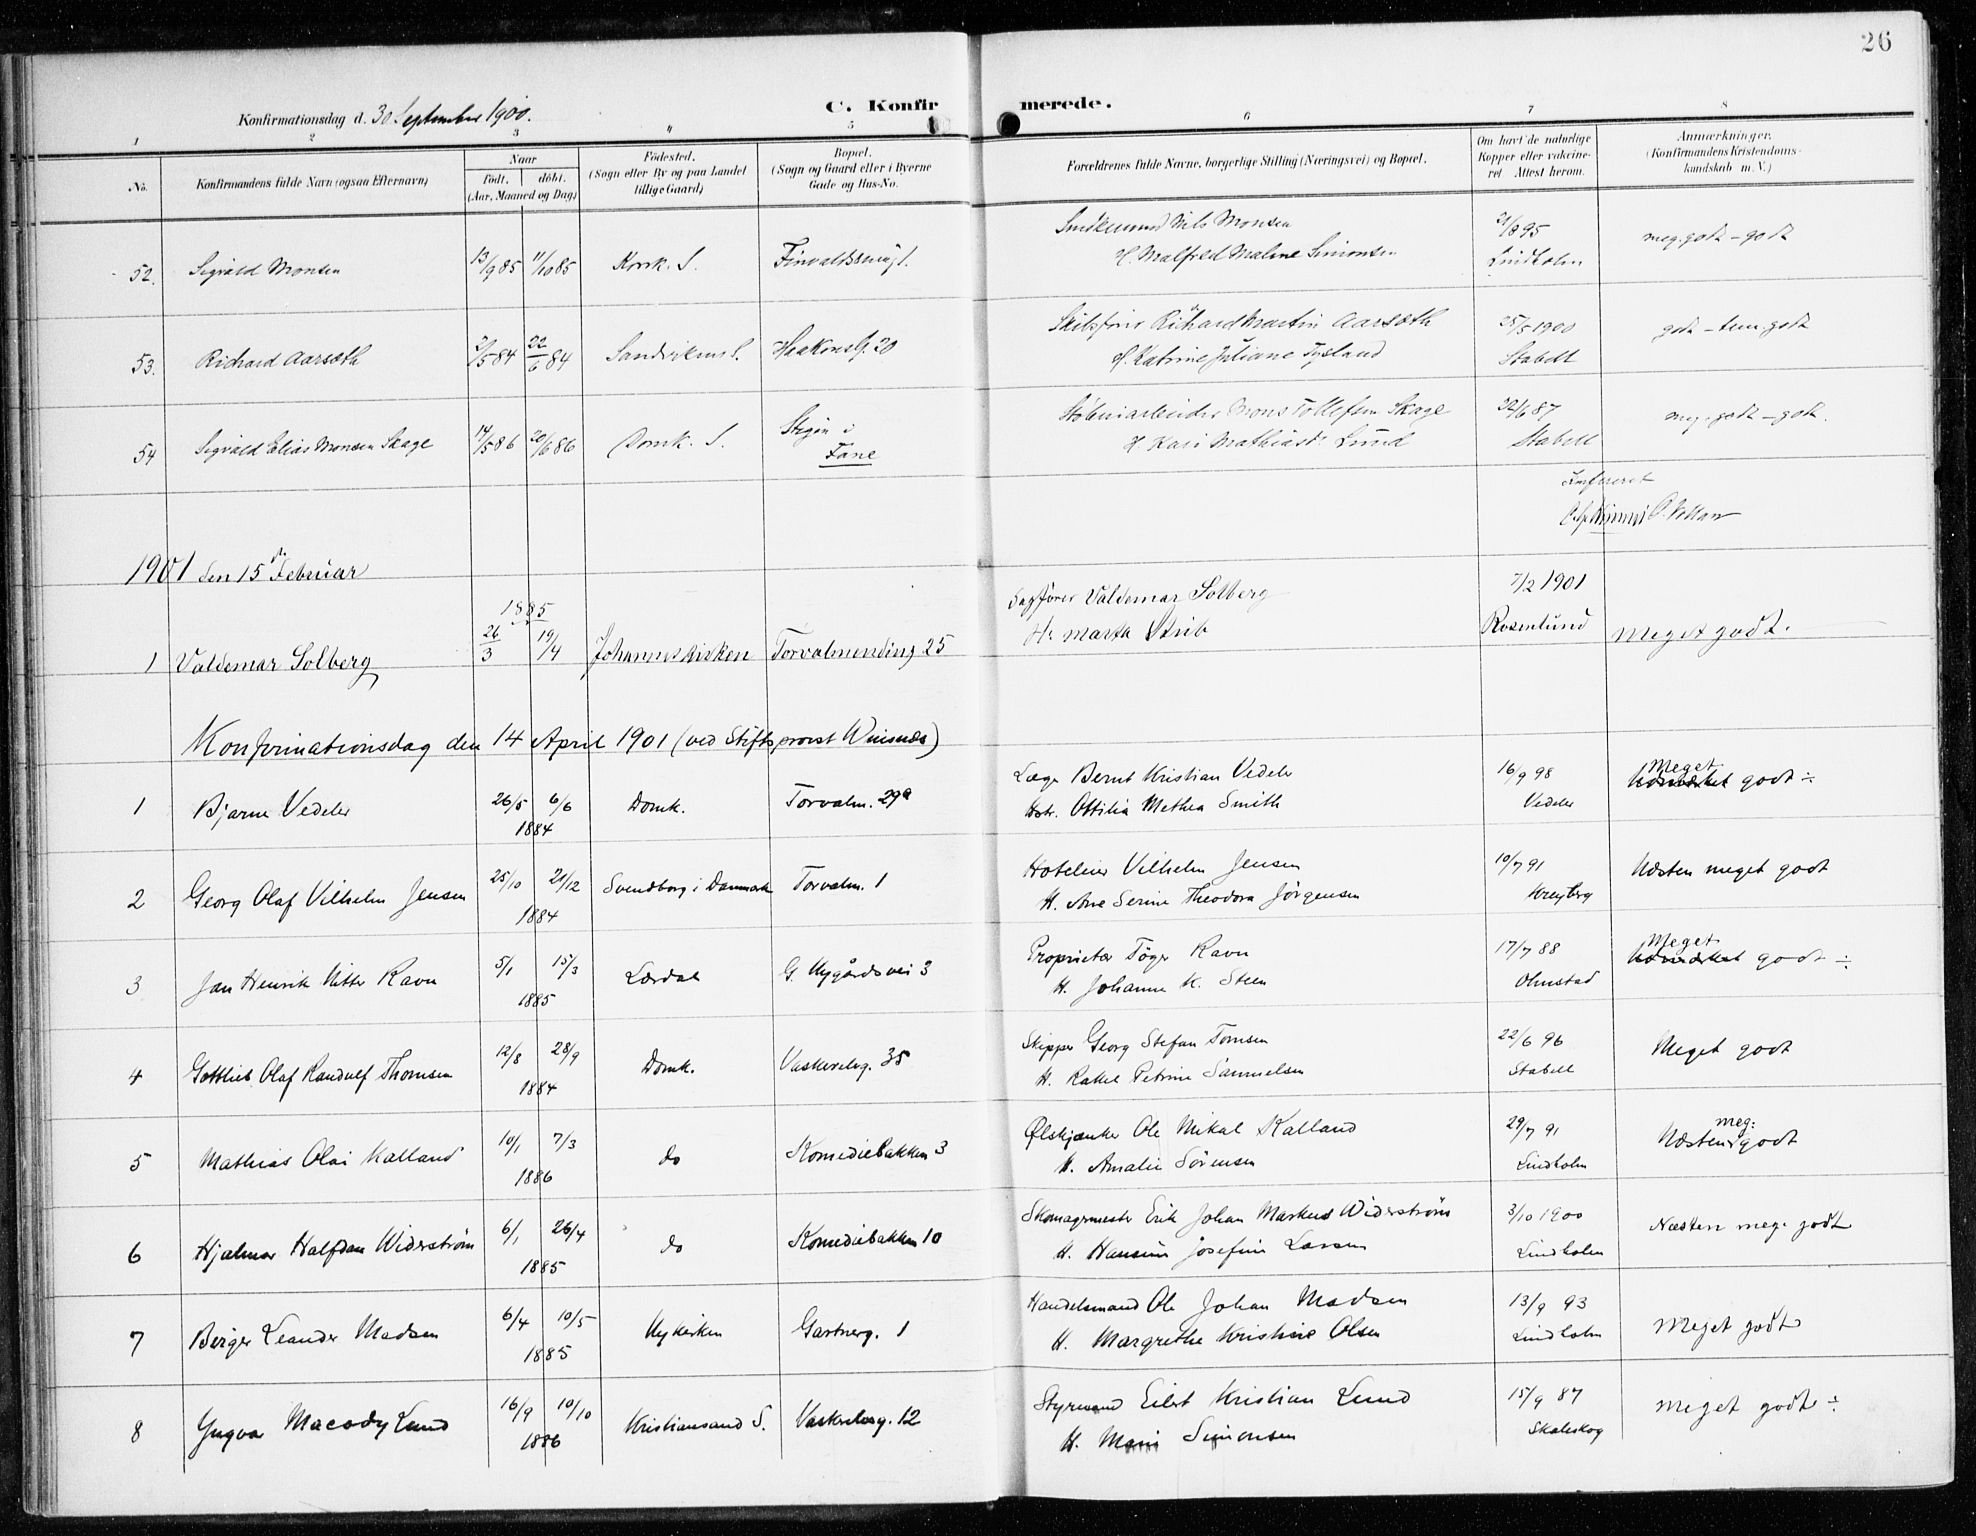 26
C. Konfirmerede.
Konfirmationsdag d. 30 September 1900.
1 2 3 4 5 6 7 8
No.
Konfirmandens fulde Navn (ogsaa Efternavn)
Naar
født. døbt.
(Aar, Maaned og Dag)
Fødested.
(Sogn eller By og paa Landet
tillige Gaard)
Bopæl.
(Sogn og Gaard eller i Byerne
Gade og Hus-No.
Forældrenes fulde Navne, borgerlige Stilling (Næringsvei) og Bopæl.
Om havt de naturlige
Kopper eller vakcine-
ret Attest herom.
Anmærkninger.
(Konfirmandens Kristendoms-
kundskab m. V.)
Nils Monsen 21/8 95 meg. godt - godt
52. Sigvald Monsen 13/9 85 11/10 85 Korsk. S. H. Malfred Maline Simonsen Lindholm
Richard Martin Aarsæth 25/5 1900 godt - tem. godt
53. Richard Aarsæth 2/5 84 22/6 84 Sandvikens S. Haakonsg. 20 H. Katrine Juliane Tysland Stabell
Mons Tollefsen Skage 22/6 87 meg. godt - godt.
54 Sigvald Elias Monsen Skage 14/5 86 20/6 86 Domk. S. i H. Kari Mathiasd. Lund Stabell
Fane
1901 den 15de Februar
Sagfører Valdemar Solberg 7/2 1901
1885
1 Valdemar Solberg 26/3 19/4 Johanneskirken Torvalmending 25 H. Marta Strib Rosenlund Meget godt.
Konfirmationsdag den 14 April 1901 (ved Stiftsprovst Wiisnæs)
Læge Bernt Kristian Vedeler 16/9 98 Meget
1 Bjarne Vedeler 26/5 6/6 Domk. Torvalm. 29a Hstr. Ottilia Methea Smith Vedeler godt ÷
1884
Hoteleier Vilhelm Jensen 10/7 91 Næsten meget godt
2 Georg Olaf Vilhelm Jensen 25/10 21/12 Svendborg i Danmark Torvalm. 1 H. Ane Serine Theodora Jörgensen Kreyberg
1884
Proprietær Töger Ravn 17/7 88 Meget
3 Jan Henrik Nitter Ravn 5/1 15/3 Lærdal G. Nygårdsvei 3 H. Johanne K. Steen Olmstad godt ÷
1885
Skipper Georg Stefan Tomsen 22/6 96 Meget godt
4 Gottlieb Olaf Randulf Thomsen 12/8 28/9 Domk. Vaskerelvg. 35 H. Rakel Petrine Samuelsen Stabell
1884
Ølskjænker Ole Mikal Kalland 29/7 91 meg:
5 Mathias Olai Kalland 10/1 7/3 do Komediebakken 3 H. Amalie Sörensen Lindholm Næsten godt
1886
Skomagermester Erik Johan Markus Widerström 3/10 1900 Næsten meg. godt
6 Hjalmar Halfdan Widerström 6/1 26/4 do Komediebakken 10 H. Hansine Josefine Larsen Lindholm
1885
Handelsmand Ole Johan Madsen 13/9 93 Meget godt
7 Birger Leander Madsen 6/4 10/5 Nykirken Gartnerg. 1 H. Margrethe Kristine Olsen Lindholm
1885
Styrmand Eilert Kristian Lund 15/9 87 Meget godt ÷
8 Yngvar Macody Lund 16/9 10/10 Kristiansand S. Vaskerelvg. 12 H. Marie Simonsen Skaleskog
1886